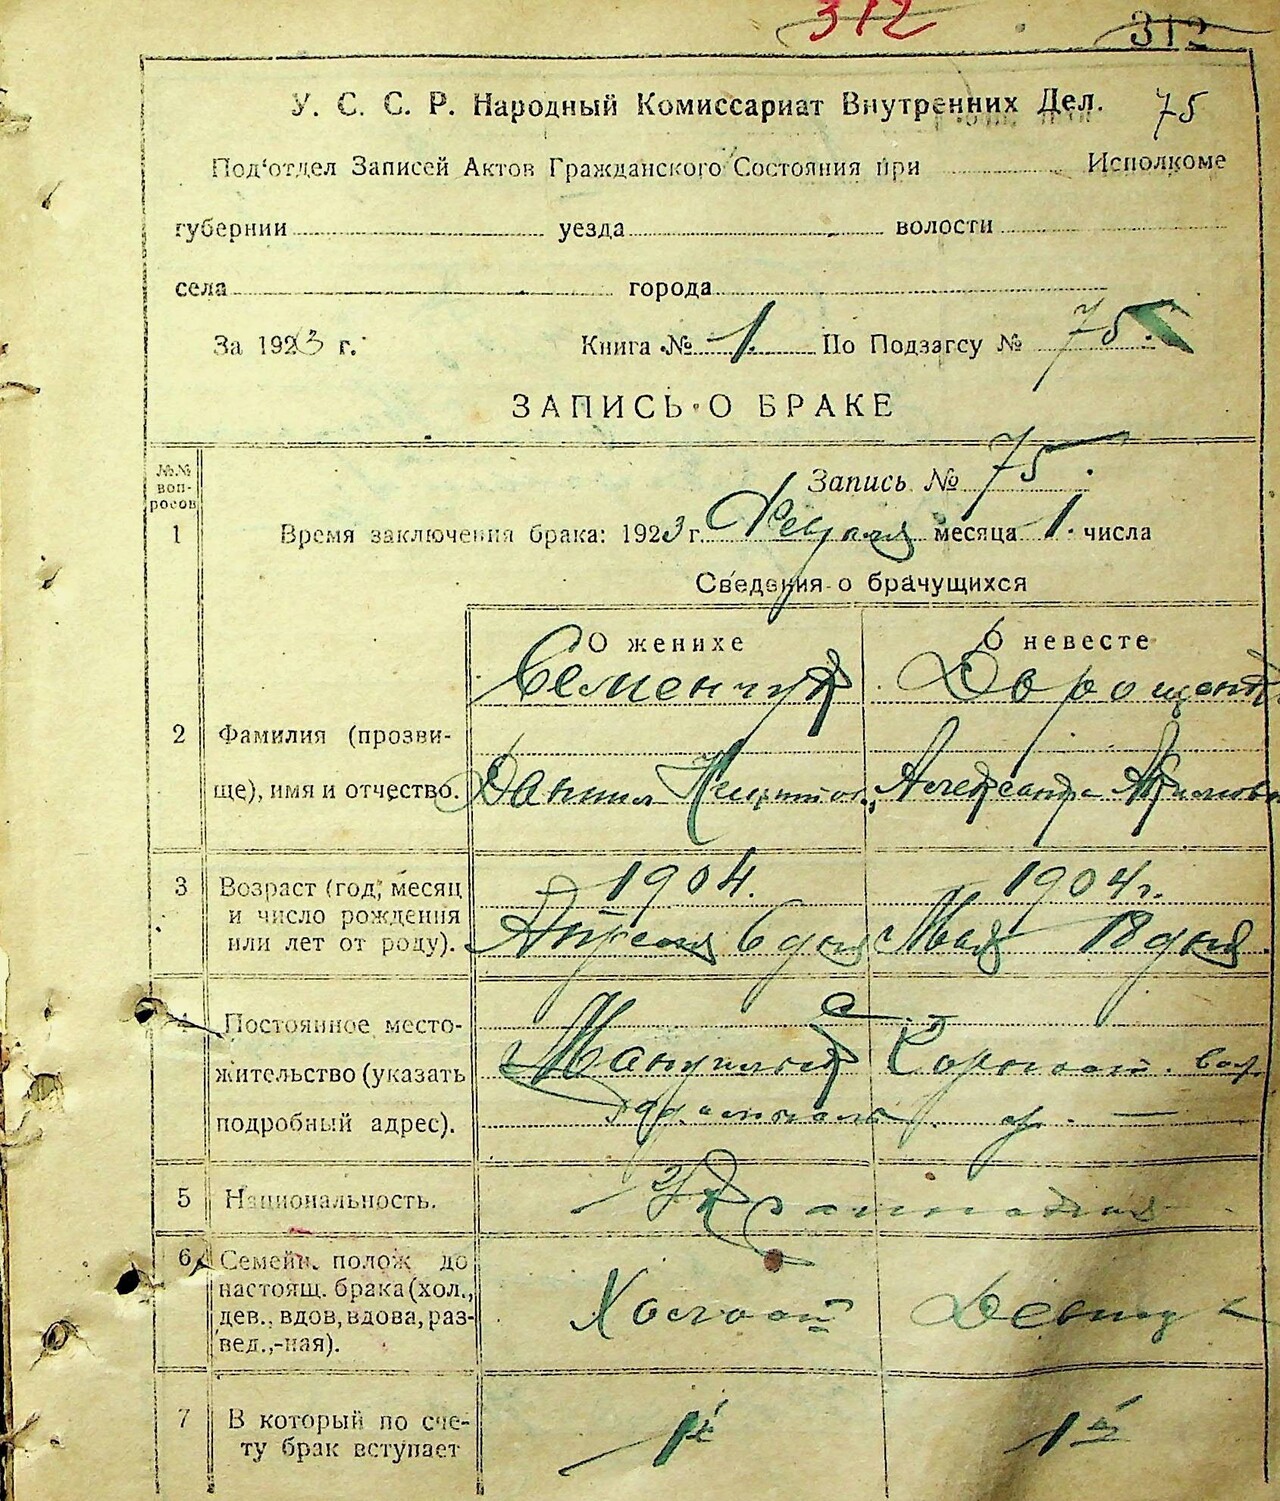 312 312
У. С. С. Р. Народный Комиссариат Внутренних Дел. 75
Под'отдел Записей Актов Гражданского Состояния при Исполкоме
губернии уезда волости
села города
За 1923 г. Книга № 1. По Подзагсу № 75.
ЗАПИСЬ О БРАКЕ
№№ вопросов
Запись № 75.
1 Время заключения брака: 1923 г. месяца 1. числа
Сведения о брачущихся
О женихе О невесте
Семенчук
2 Фамилия (прозви-
ще), имя и отчество. Даниил Александра
3 Возраст (год, месяц 1904. 1904 г.
и число рождения
или лет от роду). Апреля 6 дня Мая 18 дня
4 Постоянное место-
жительство (указать
подробный адрес).
5 Национальность.
6 Семейн. полож до
настоящ. брака (хол., Холост Девица
дев., вдов, вдова, раз-
вед.,-ная).
7 В который по сче- 1й 1й
ту брак вступает